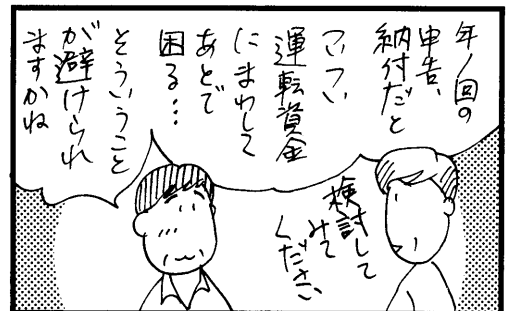 年1回の
申告、
納付だと
ついつい
運転資金
にまわして
あとで
困る…
そういうこと
が避けられ
ますかね
検討して
みて
ください